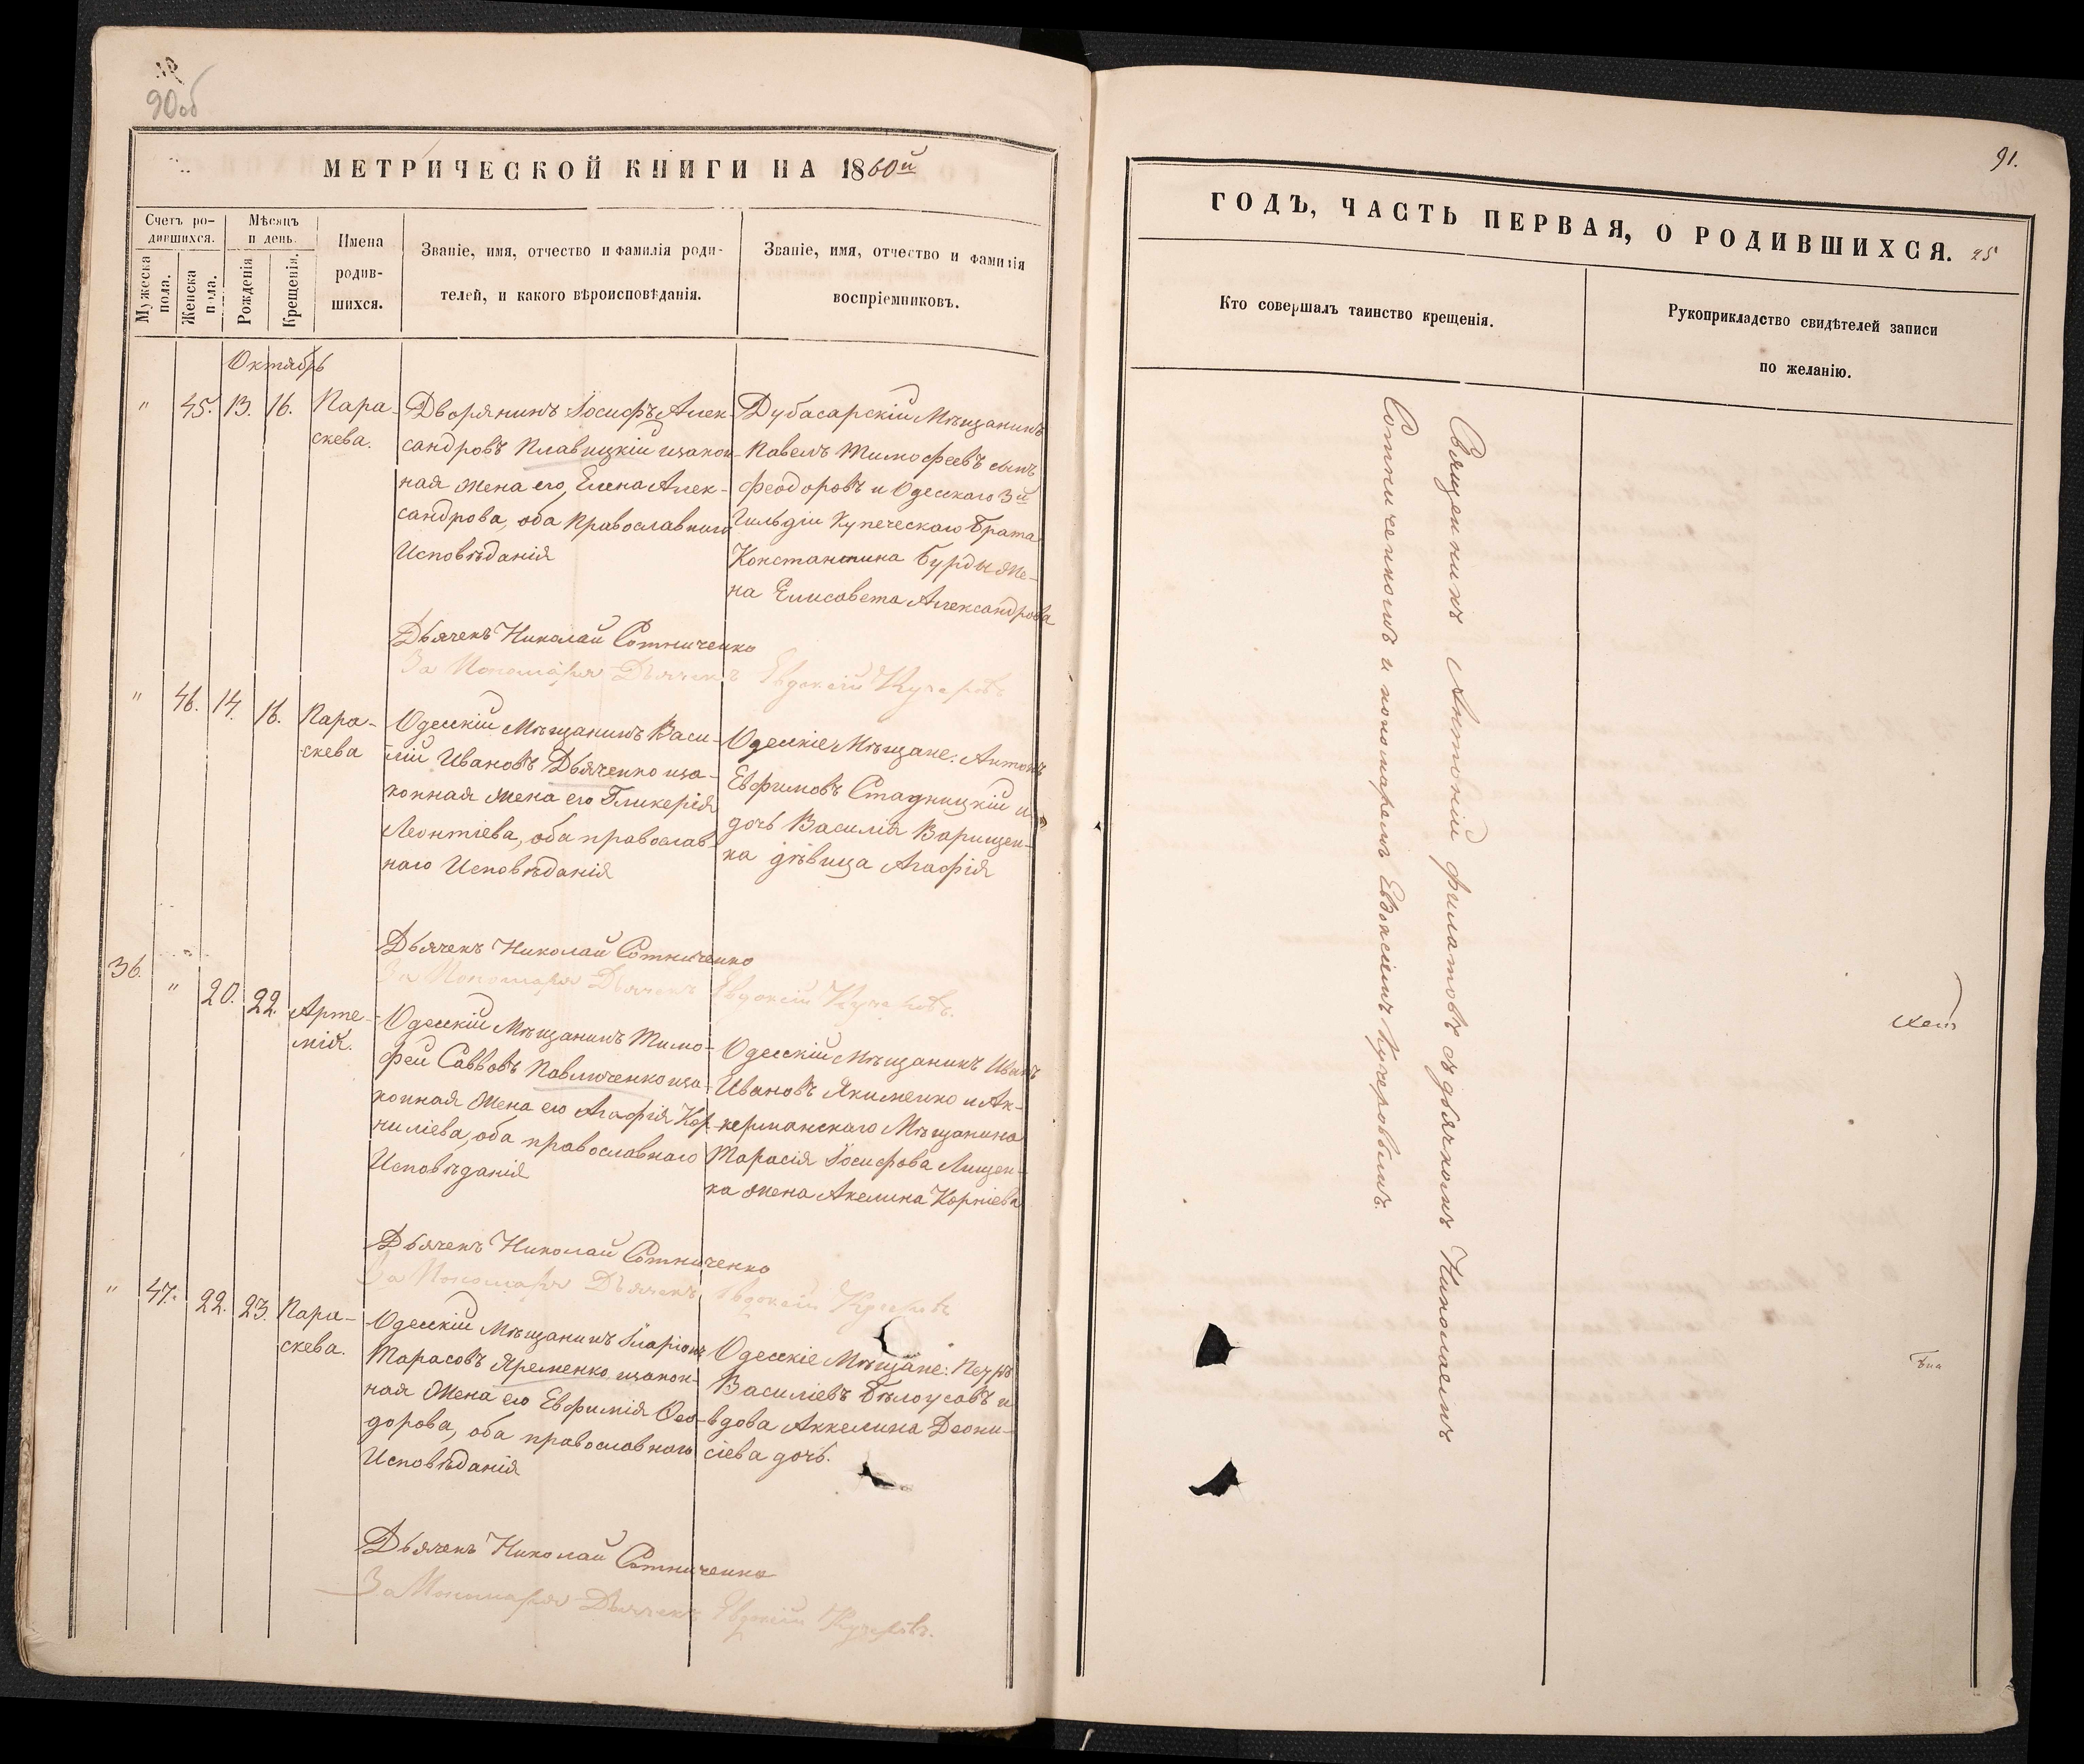 90об
МЕТРИЧЕСКОЙ КНИГИ НА 1860й
Счетъ ро-
дившихся.
Мѣсяцъ
и день.
Мужеска
пола.
Женска
пола.
Рожденія
Крещенія.
Имена
родив-
шихся.
Званіе, имя, отчество и фамилія роди-
телей, и какого вѣроисповѣданія.
Званіе, имя, отчество и фамилія
воспріемниковъ.
Октябрь
" 45. 13. 16.
Пара-
скева.
Дворянинъ Іосифъ Алек-
сандровъ Плавицкій изакон-
ная жена его, Елена Алек-
сандрова, оба Православнаго
Исповѣданія
Дубасарскій Мѣщанинъ
Павелъ Тимофеевъ сынъ
Феодоровъ и Одесскаго 3й
Гильдіи Купеческаго брата
Константина Бурды же-
на Елисавета Александрова
Дьячекъ Николай Сотниченко
За Пономаря Дьячекъ Евдокій Кучеровъ
" 46. 14. 16.
Пара-
скева
Одесскій Мѣщанинъ Васи-
лій Ивановъ Дьяченко иза-
конная жена его Гликерія
Леонтіева, оба православ-
наго Исповѣданія
Одесскіе Мѣщане: Антонъ
Евфимовъ Стадницкій и
дочь Василія Варищен-
ка дѣвица Агафія
Дьячекъ Николай Сотниченко
За Пономаря Дьячекъ Евдокій Кучеровъ.
36. " 20. 22.
Арте-
мій.
Одесскій Мѣщанинъ Тимо-
фей Саввовъ Павлюченко иза-
конная жена его Агафія Кор-
ниліева, оба православнаго
Исповѣданія
Одесскій Мѣщанинъ Иванъ
Ивановъ Якименко и Ак-
керманскаго Мѣщанина
Тарасія Іосифова Лищен-
ка жена Акелина Корніева
Дьячекъ Николай Сотниченко
За Пономаря Дьячекъ Евдокій Кучеровъ
" 47. 22. 23.
Пара-
скева.
Одесскій Мѣщанинъ Іларіонъ
Тарасовъ Яременко изакон-
ная жена его Евфимія Фео-
дорова, оба православнаго
Исповѣданія
Одесскіе Мѣщане: Петръ
Василіевъ Бѣлоусовъ и
вдова Аккелина Деони-
сіева дочь.
Дьячекъ Николай Сотниченко
За Пономаря Дьячекъ Евдокій Кучеровъ.
91.
ГОДЪ, ЧАСТЬ ПЕРВАЯ, О РОДИВШИХСЯ.
25
Кто совершалъ таинство крещенія.
Рукоприкладство свидѣтелей записи
по желанію.
Священникъ Антоній Филатовъ съ дьячкомъ Николаемъ
Сотниченкомъ и пономаремъ Евдокіемъ Кучеровымъ.